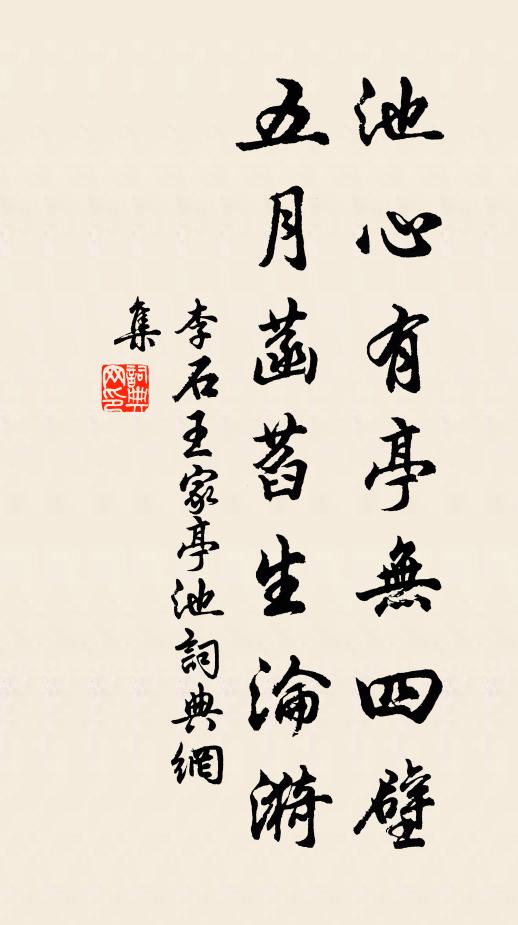 池心有亭無四壁
五月菡萏生淪漪
李石王家亭池詞典網
集
詞典網印